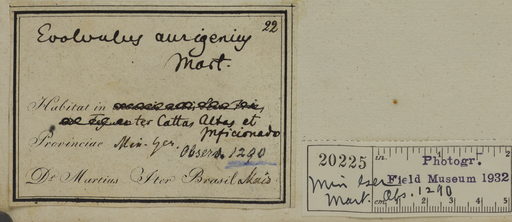 22
Evolvulus aurigenius
Mart.
Habitat in
inter Cattas Altas et
Inficionado
Provinciae Min. Ger.
Observ. 1290
Dr. Martius Iter Brasil. Maio
20225
in. 1 2 3 4 5
Photogr.
Field Museum 1932
Min Ger
Mart. Obs. 1290
cm